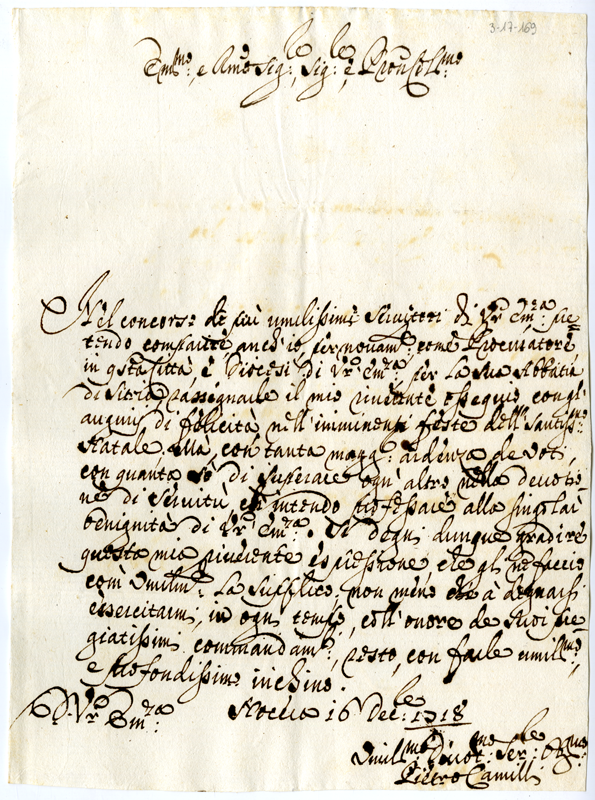 3-17-169
Em.mo e R.mo Sig.re, Sig.re e Pron Col.mo
Nel concorso de più umilissimi Servitori di V.ra Em.za pre=
tendo comparire anch'io fermam: come Procuratore
in q.sta Città e Diocesi di V.ra Em.za, per La Sua Abbatia
di Sitria rassegnarle il mio riverente ossequio con gl'
augurii di felicità nell'imminenti feste dell Santiss:
Natale. Mà, con tanta magg: ardenza de voti,
con quanta sò di superare ogn'altro nella devotio
ne di servitù, ch'intendo professare alla singolar
benignità di V.ra Em.za. Si degni dunque gradire
questa mia riverente espressione che gli ne faccio
com' Umilm: La supplico, non meno che à degnarsi
essercitarmi, in ogn tempo, coll'onore de Suoi pre
giatissimi commandam:, resto, con farle umil.mo,
e profondissimo inchino.
D V.ra Em.za Nocera 16 Dec.le: 1718
Umil.mo Divot.mo Ser.le Obg.mo
Pietro Camilli